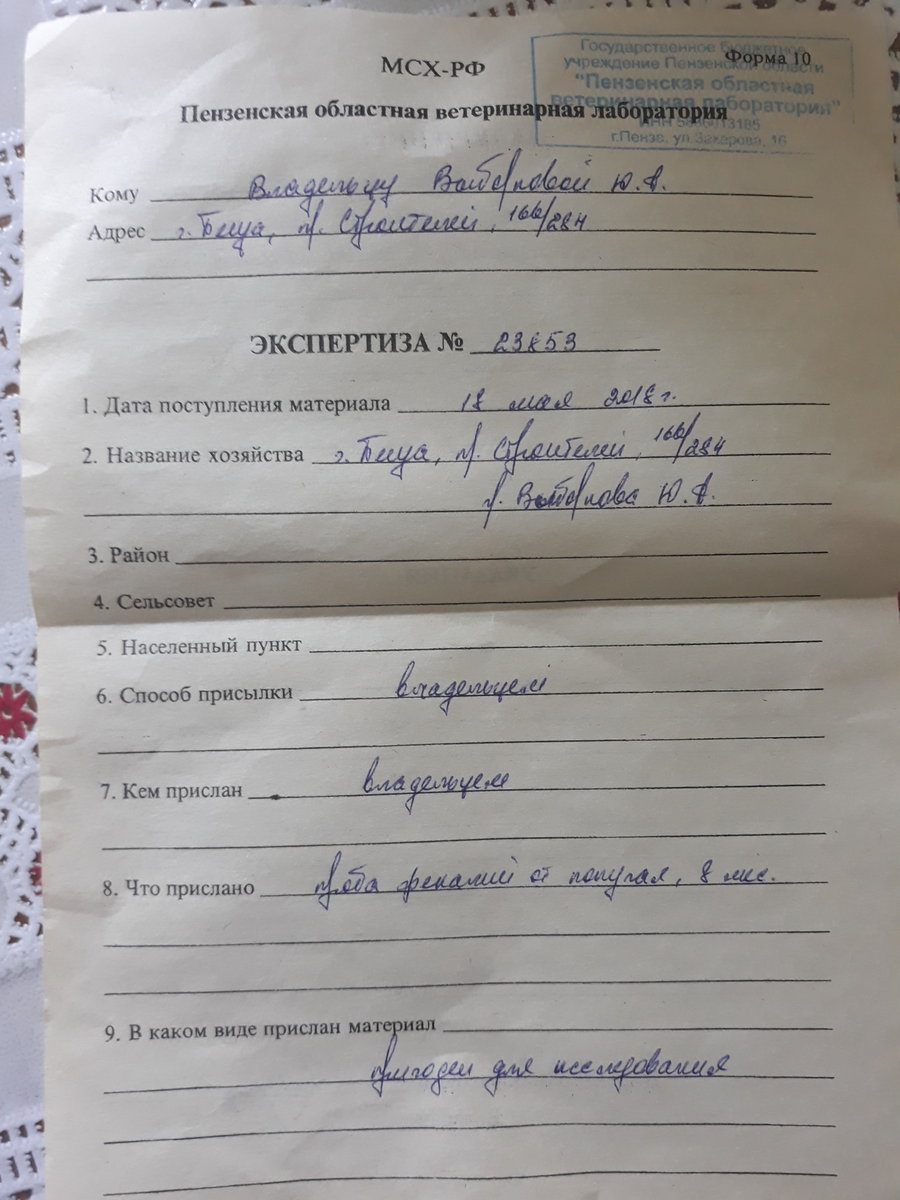 МСХ-РФ
Форма 10
Государственное бюджетное
учреждение Пензенской области
"Пензенская областная
ветеринарная лаборатория"
г.Пенза, ул.Захарова, 16
Пензенская областная ветеринарная лаборатория
Кому Владельцу Ю.А.
Адрес г. пр. Строителей, 166/284
ЭКСПЕРТИЗА № 23853
1. Дата поступления материала 18 мая 2018 г.
2. Название хозяйства г. пр. Строителей, 166/284
Ю.А.
3. Район
4. Сельсовет
5. Населенный пункт
6. Способ присылки владельцем
7. Кем прислан владельцем
8. Что прислано проба фекалий от попугая, 8 мес.
9. В каком виде прислан материал
пригоден для исследования